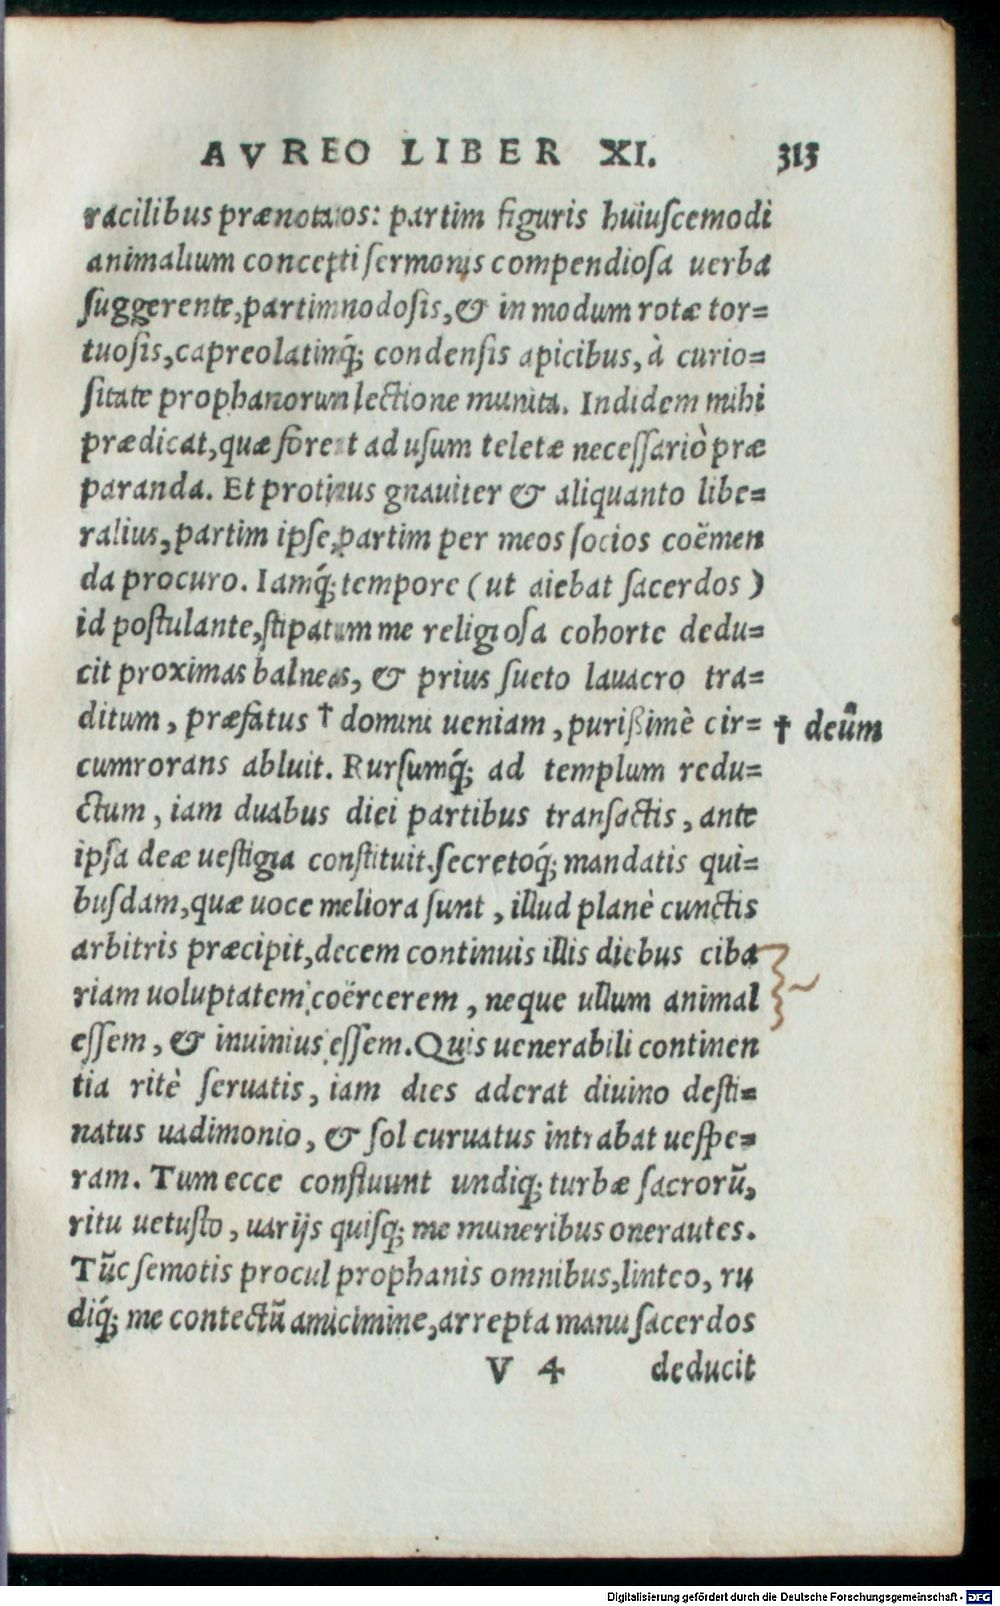 AVREO LIBER XI. 313
racilibus prænotatos: partim figuris huiuscemodi
animalium concepti sermonis compendiosa uerba
suggerente, partim nodosis, & in modum rotæ tor=
tuosis, capreolatinq́; condensis apicibus, à curio=
sitate prophanorum lectione munita. Indidem mihi
prædicat, quæ forent ad usum teletæ necessariò præ
paranda. Et protinus gnauiter & aliquanto libe=
ralius, partim ipse, partim per meos socios coëmen
da procuro. Iamq́; tempore (ut aiebat sacerdos)
id postulante, stipatum me religiosa cohorte dedu=
cit proximas balneas, & prius sueto lauacro tra=
ditum, præfatus † domini ueniam, purißimè cir= † deûm
cumrorans abluit. Rursumq́; ad templum redu=
ctum, iam duabus diei partibus transactis, ante
ipsa deæ uestigia constituit. secretoq́; mandatis qui=
busdam, quæ uoce meliora sunt, illud planè cunctis
arbitris præcipit, decem continuis illis diebus ciba
riam uoluptatem coërcerem, neque ullum animal
essem, & inuinius essem. Quis uenerabili continen
tia ritè seruatis, iam dies aderat diuino desti=
natus uadimonio, & sol curuatus intrabat uespe=
ram. Tum ecce confluunt undiq; turbæ sacrorũ,
ritu uetusto, uarijs quisq; me muneribus onerautes.
Tũc semotis procul prophanis omnibus, linteo, ru
diq́; me contectũ amicimine, arrepta manu sacerdos
V 4 deducit
Digitalisierung gefördert durch die Deutsche Forschungsgemeinschaft - DFG